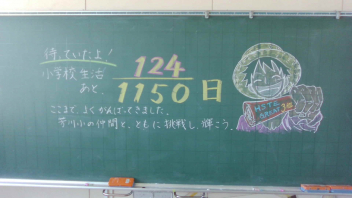 待っていたよ!
小学校生活
あと、
124
1150日
ここまで、よくがんばってきました。
芋川小の仲間と、ともに挑戦し、輝こう。